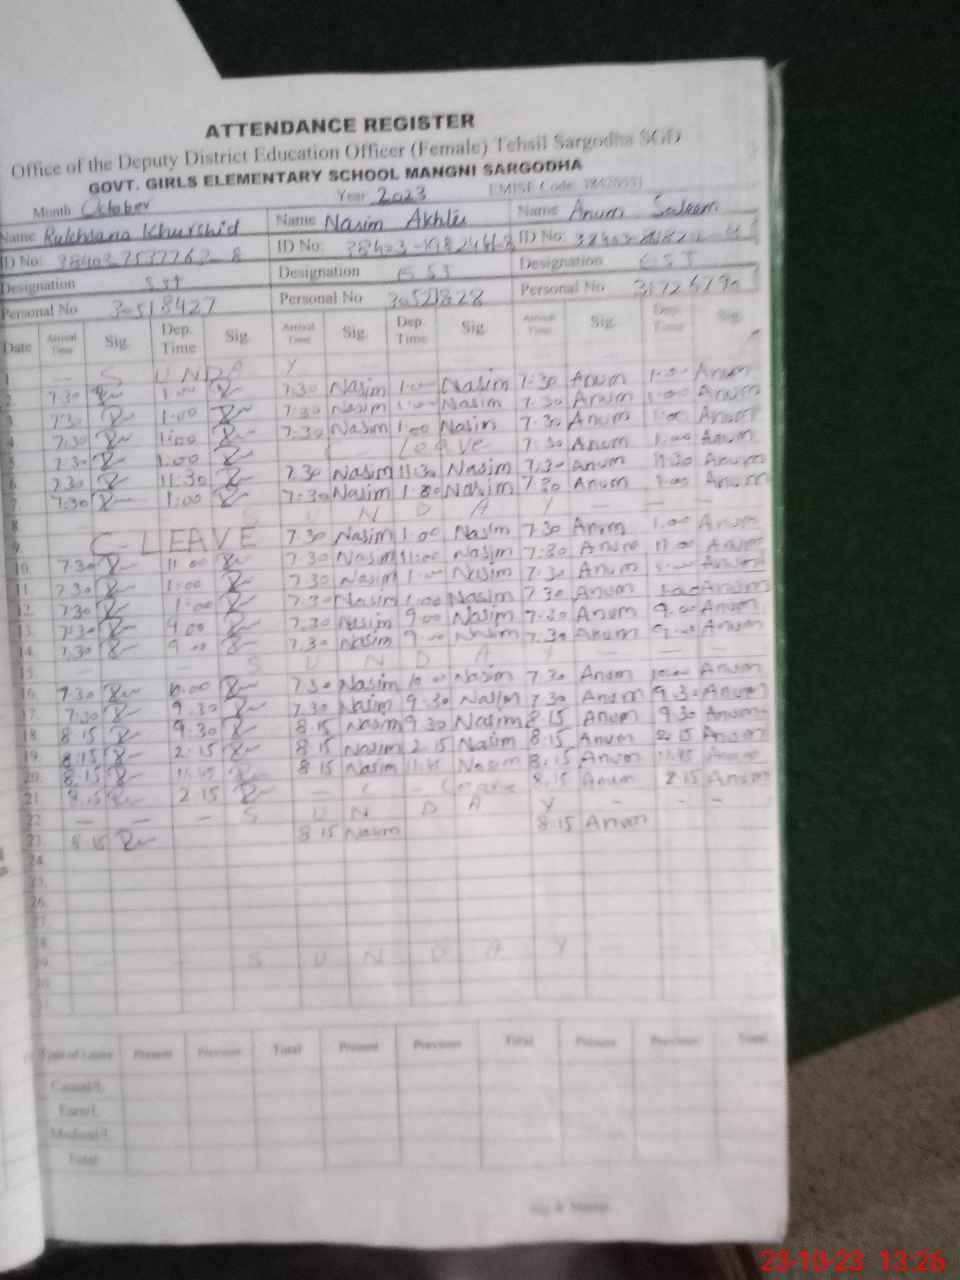 ATTENDANCE REGISTER
Office of the Deputy District Education Officer (Female) Tehsil Sargodha SGD
GOVT. GIRLS ELEMENTARY SCHOOL MANGNI SARGODHA
Month October Year 2023 EMISE Code:
Name Rukhsana Khurshid Name Nasim Akhtar Name Anum Saleem
ID No: ID No: ID No:
Designation SST Designation EST Designation EST
Personal No 30518427 Personal No Personal No
Date Arrival Time Sig. Dep. Time Sig. Arrival Time Sig. Dep. Time Sig. Arrival Time Sig. Dep. Time Sig.
1 — S U N D A Y
2 7.30 1.00 7.30 Nasim 1.00 Nasim 7.30 Anum 1.00 Anum
3 7.30 1.00 7.30 Nasim 1.00 Nasim 7.30 Anum 1.00 Anum
4 7.30 1:00 7.30 Nasim 1.00 Nasim 7.30 Anum 1.00 Anum
5 7.30 1.00 Leave 7.30 Anum 1.00 Anum
6 7.30 11:30 7.30 Nasim 11.30 Nasim 7.30 Anum 11.30 Anum
7 7.30 1:00 7.30 Nasim 1.00 Nasim 7.30 Anum 1.00 Anum
8 S U N D A Y — — —
9 C-LEAVE 7.30 Nasim 1.00 Nasim 7.30 Anum 1.00 Anum
10. 7.30 11.00 7.30 Nasim 11:00 Nasim 7.30 Anum 11.00 Anum
11. 7.30 1:00 7.30 Nasim 1.00 Nasim 7.30 Anum 1.00 Anum
12. 7.30 1:00 7.30 Nasim 1.00 Nasim 7.30 Anum 1.00 Anum
13. 7.30 9.00 7.30 Nasim 9.00 Nasim 7.30 Anum 9.00 Anum
14. 7.30 9.00 7.30 Nasim 9.00 Nasim 7.30 Anum 9.00 Anum
15. — — S U N D A Y — — —
16. 7.30 7.30 Nasim Nasim 7.30 Anum Anum
17. 7.30 9.30 7.30 Nasim 9.30 Nasim 7.30 Anum 9.30 Anum
18 8.15 9.30 8.15 Nasim 9.30 Nasim 8.15 Anum 9.30 Anum
19. 8.15 2.15 8.15 Nasim 2.15 Nasim 8.15 Anum 2.15 Anum
20. 8.15 11.45 8.15 Nasim 11.45 Nasim 8.15 Anum 11.45 Anum
21. 8.15 2.15 — C — Leave 8.15 Anum 2.15 Anum
22. — — — S U N D A Y — — —
23. 8.15 8.15 Nasim 8.15 Anum
24.
25.
26.
27.
28.
29 S U N D A Y
30
Type of Leave Present Previous Total Present Previous Total Present Previous Total
Casual/L
Earn/L
Medical/L
Total
Sig. & Stamp
23-10-23 13:26